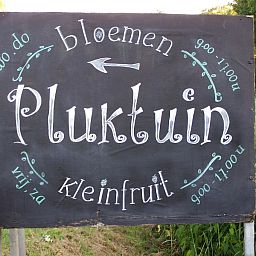 wo. do
bloemen
9.00 - 17.00 u
Pluktuin
vrij, za
kleinfruit
9.00 - 17.00 u